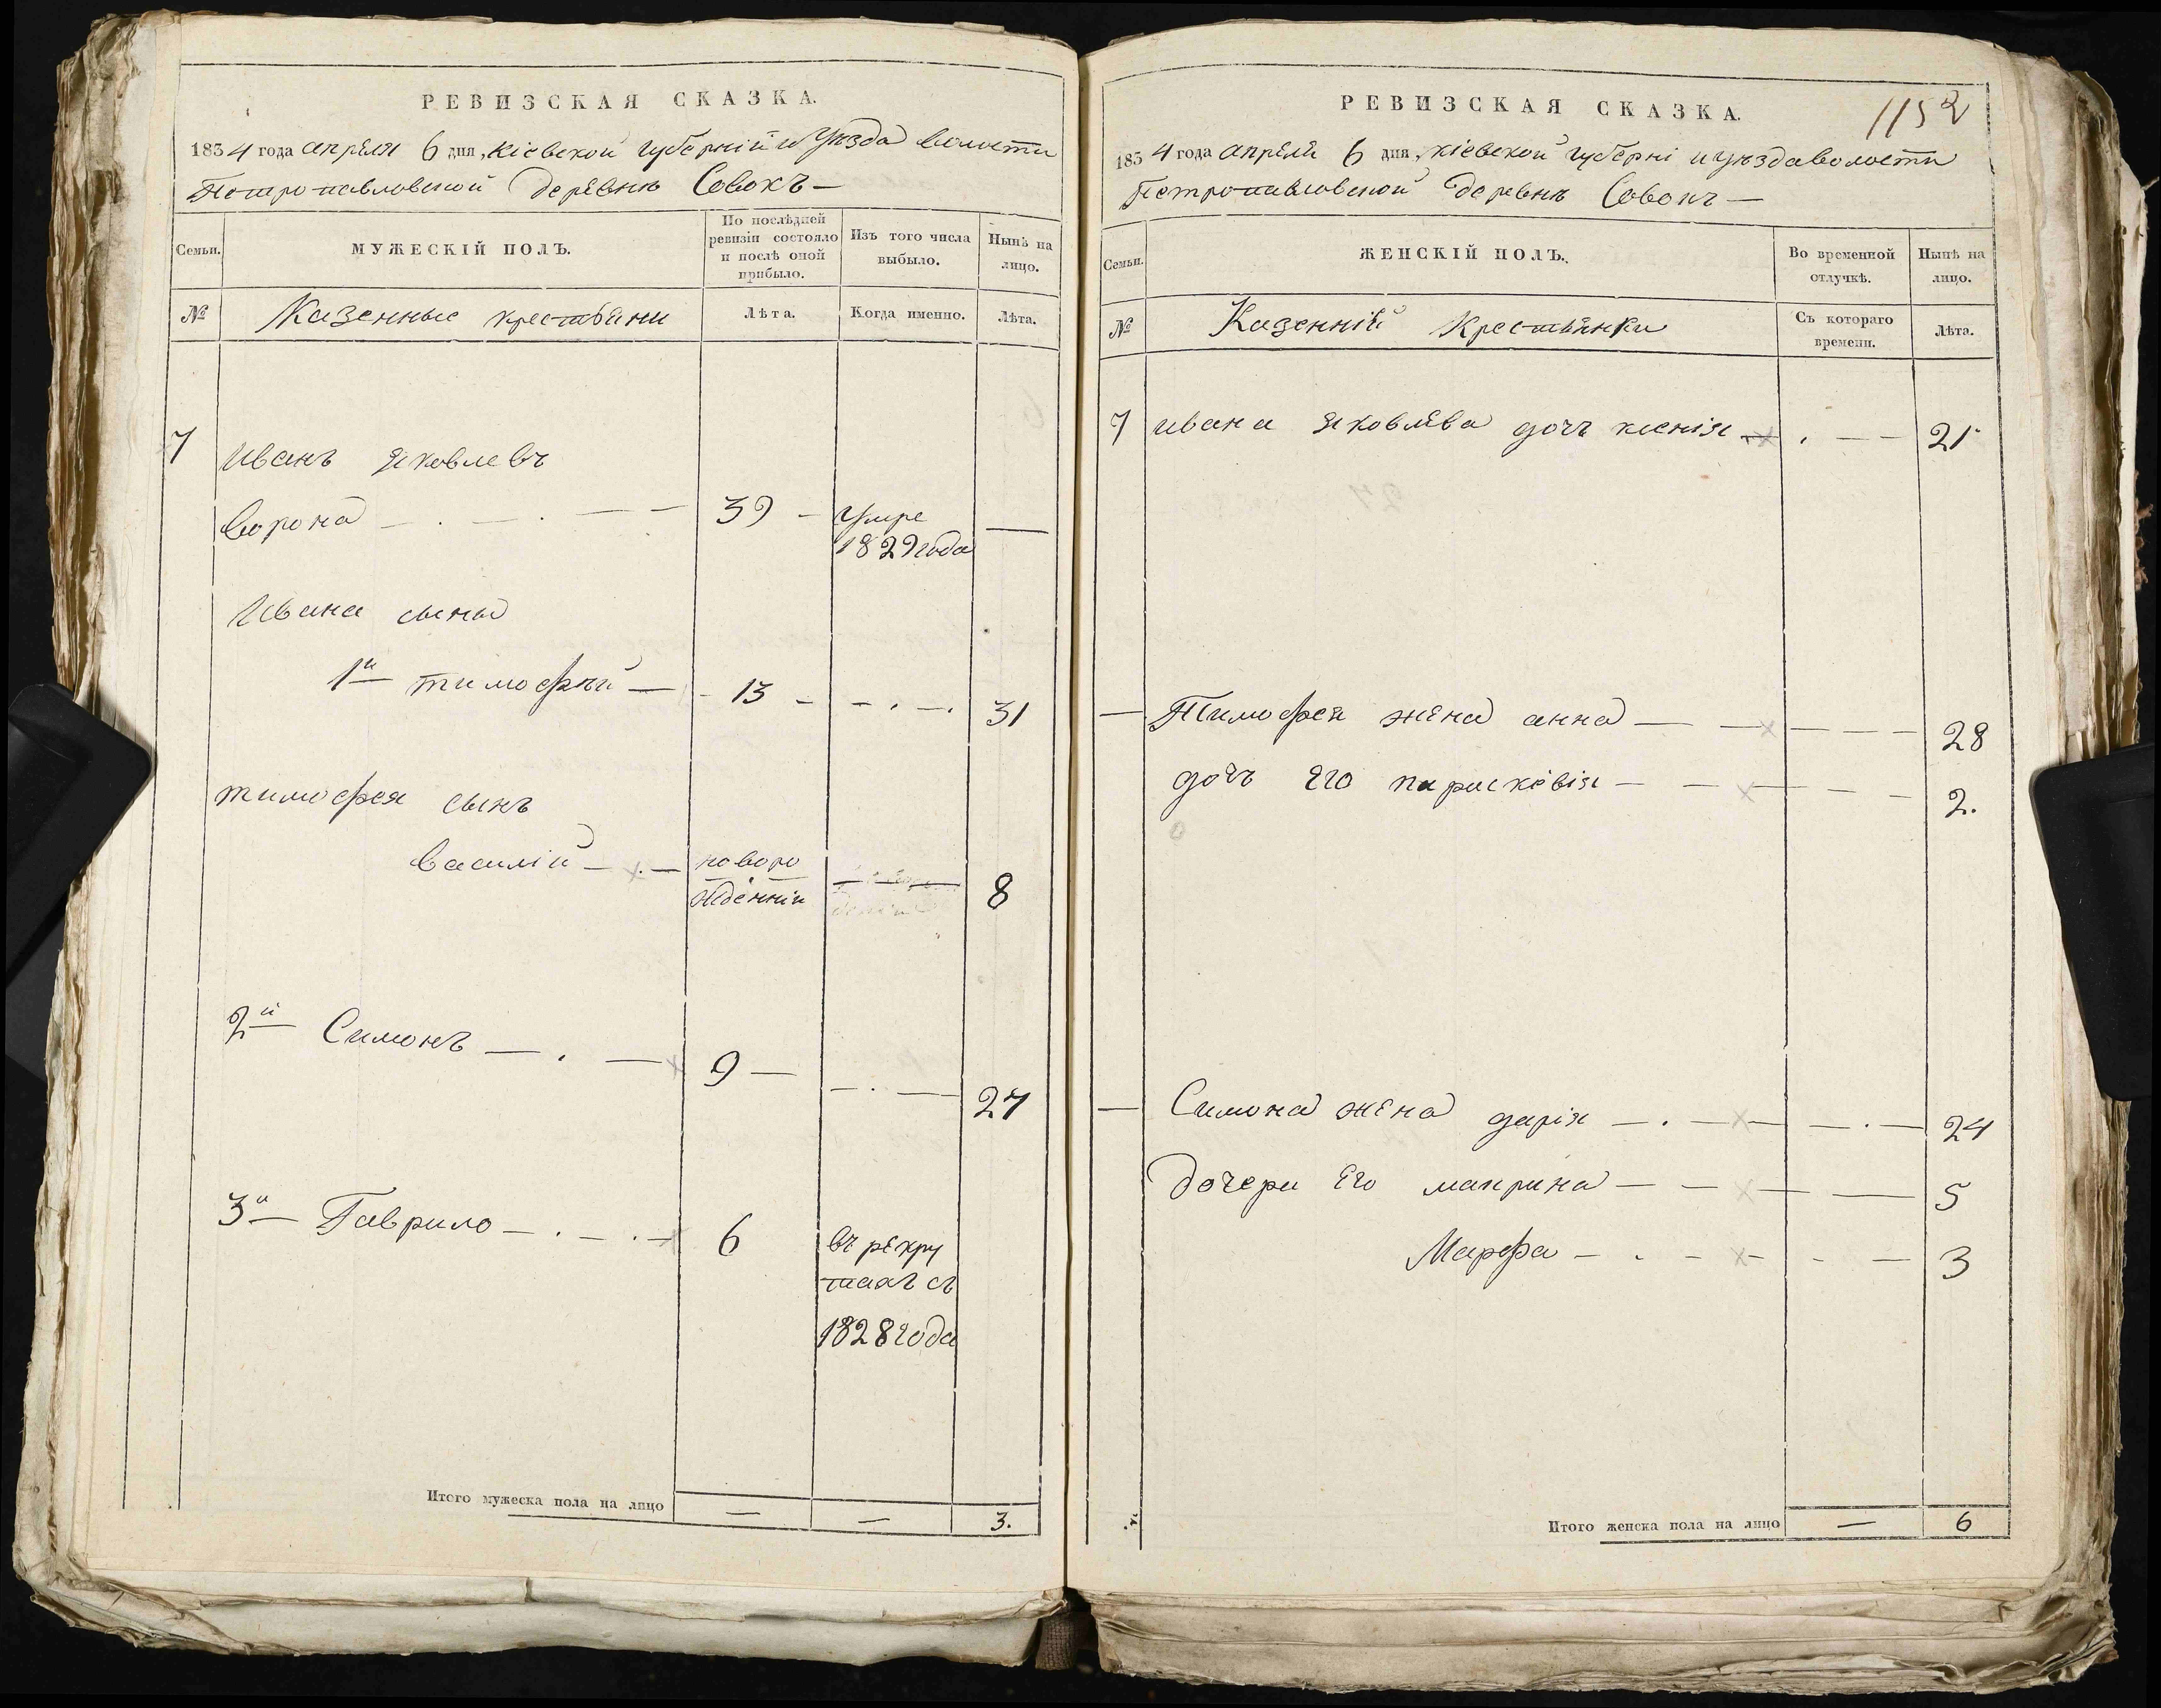 РЕВИЗСКАЯ СКАЗКА.
1834 года апреля 6 дня, кіевской губерній и уѣзда волости
Петропавловской деревнѣ Совокъ —
Семьи.
МУЖЕСКІЙ ПОЛЪ.
По послѣдней ревизіи состояло и послѣ оной прибыло.
Изъ того числа выбыло.
Нынѣ на лицо.
№
Казенные крестьяни
Лѣта.
Когда именно.
Лѣта.
7 Иванъ яковлевъ
ворона — 39 — умре —
1829 года
Ивана сына
1й тимофѣй — 13 — — 31
тимофея сынъ
василій — новоро
жденніи — 8
2й Симонъ — 9 — — 27
3й Гаврило — 6 въ рекру
тахъ съ
1828 года
Итого мужеска пола на лицо — — 3.
РЕВИЗСКАЯ СКАЗКА.
1152
1834 года апреля 6 дня, кіевской губерні и уѣзда волости
Петропавловской деревнѣ Совокъ —
Семьи.
ЖЕНСКІЙ ПОЛЪ.
Во временной отлучкѣ.
Нынѣ на лицо.
№
Казенній Крестьянки
Съ котораго времени.
Лѣта.
7 ивана яковлева дочъ ксенія — 21
— Тимофея жена анна — 28
дочъ его парасковія — 2.
— Симона жена дарія — 24
дочери его макрина — 5
Марфа — 3
Итого женска пола на лицо — 6